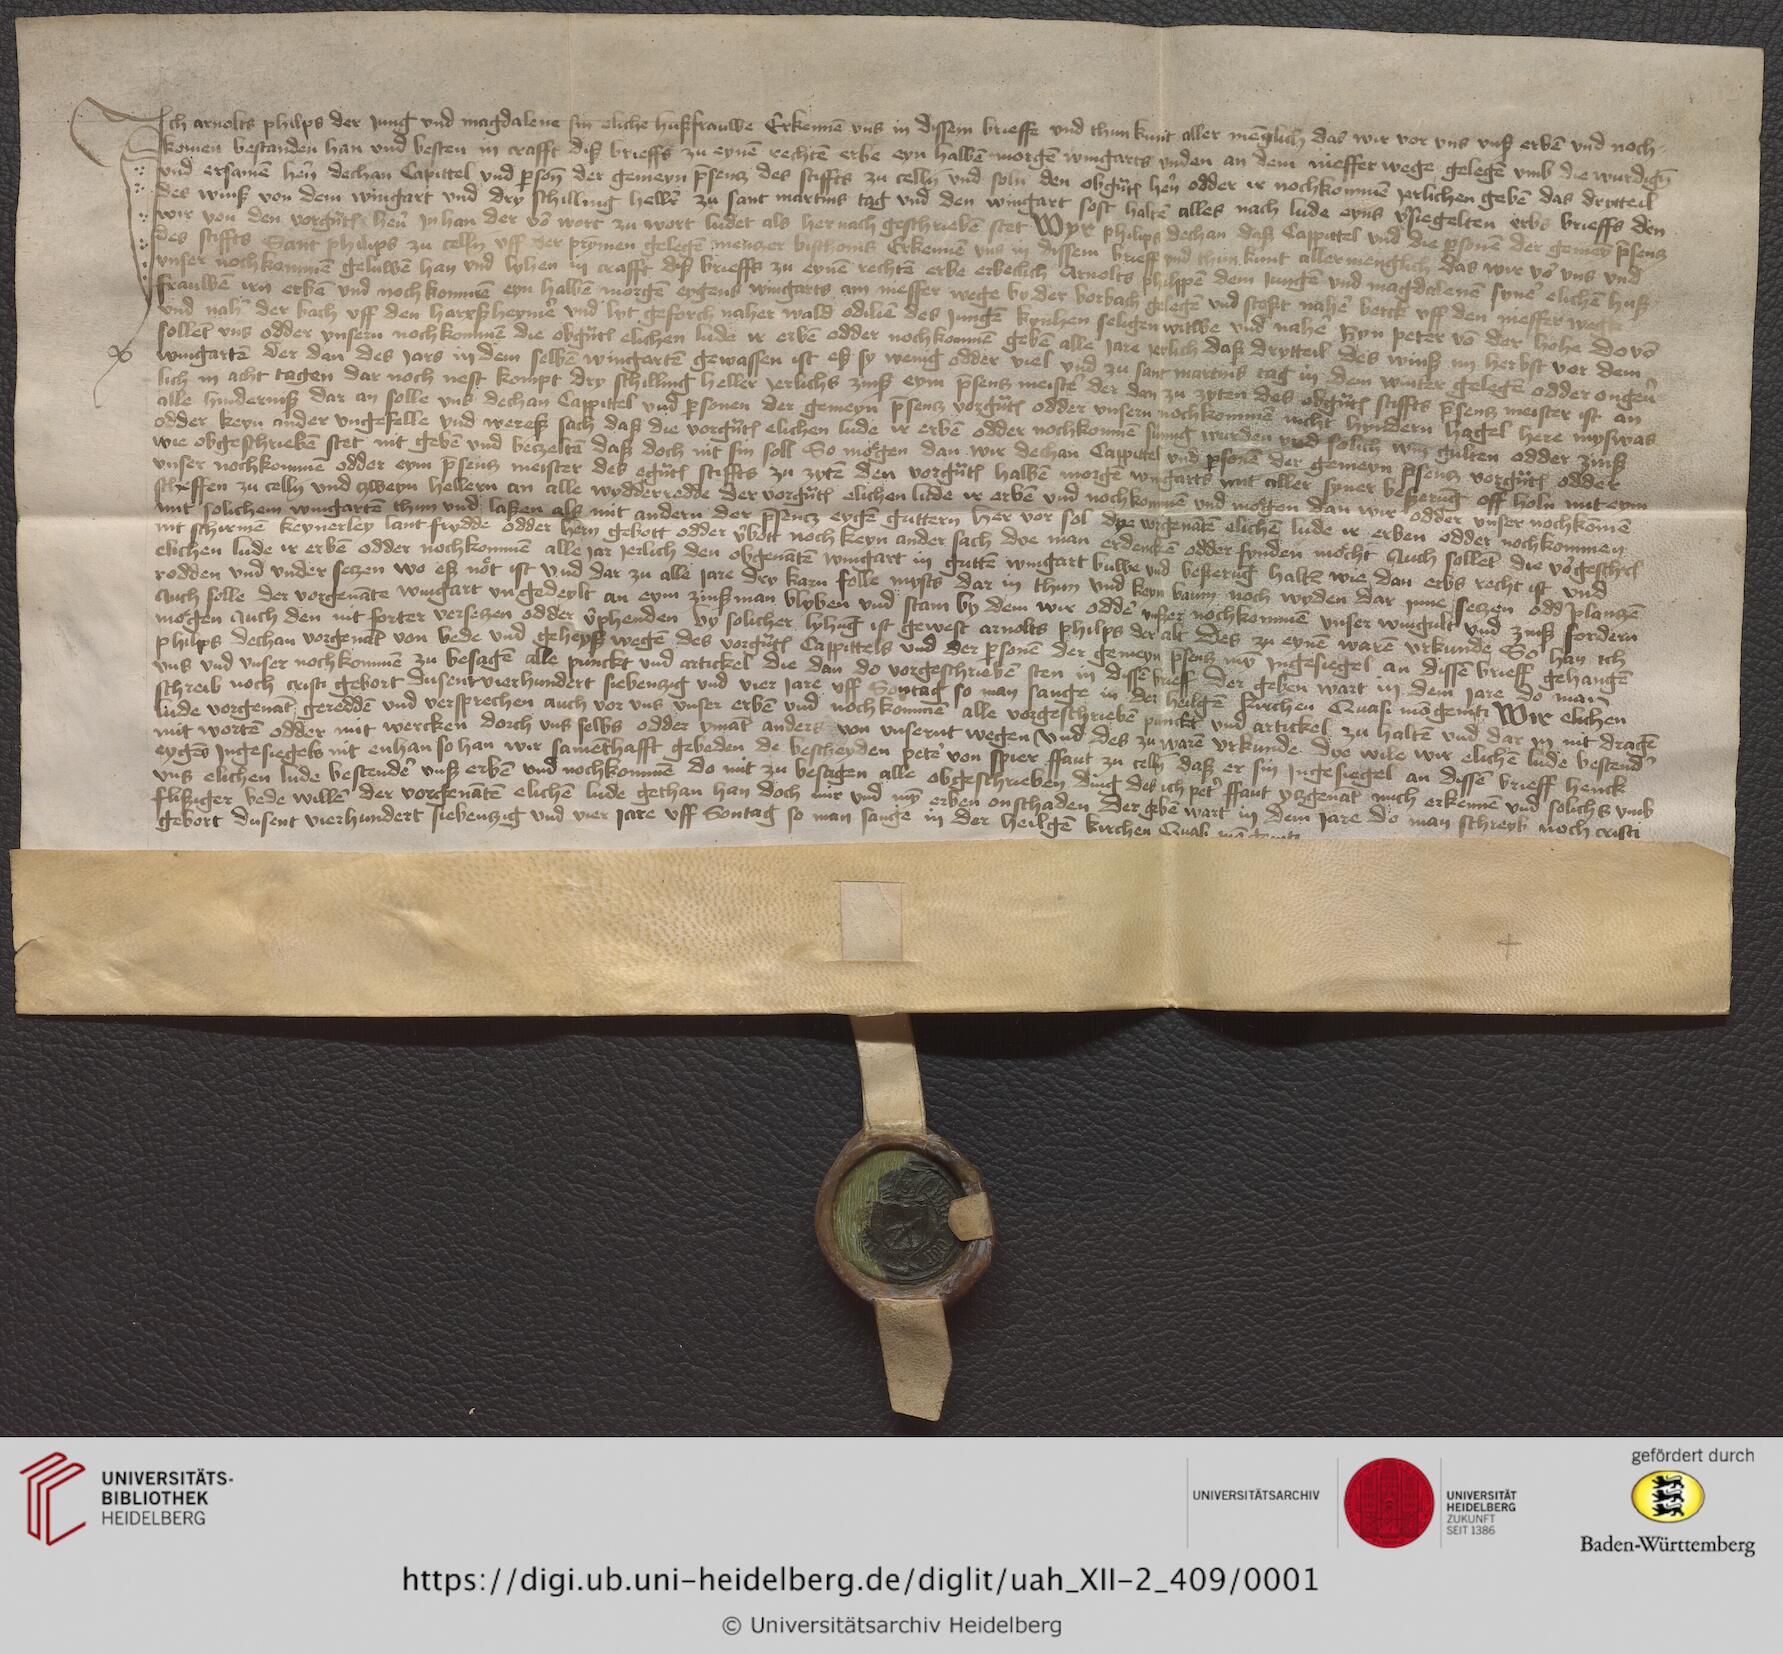 Ich arnolts philps der Jung vnd magdalene sin eliche hußfrauwe Erkennē vns in dissem brieffe vnd thun kunt aller mēglich das wir vor vns vnß erbē vnd noch-
komen bestanden han vnd besten in crafft diß brieffs zu eynē rechtē erbe eyn halbē morgē wingarts vnden an dem meffer wege gelegē vmb die wurdigē
vnd ersamē herñ dechan Capittel vnd ꝑsonē der gemeyn p̄senz des stiffts zu celln vnd soln den obgūtē herñ odder ir nochkommē Jerlichen gebē das drytteil
des winß von dem wingart vnd dry schilling hellr̄ zu sant martins tag vnd den wingart sost haltē alles nach lude eyns v̄siegelten erbs brieffs den
wir von den vorgūtē herñ Jnhan der vō wort zu wort ludet als her nach geschriebē stet Wyr philips dechan daß Cappittel vnd die ꝑsonē der gemeȳ p̄senz
des stiffts Sant philips zu celln vff der prymen gelegē menzer bisthoms Erkennē vns in dissem brieff vnd thun kunt allermenglich das wir vō vns vnd
vnser nochkommē geluwē han vnd lyhen in crafft diß brieffs zu eynē rechtē erbe erbeclich Arnolts philppē dem Jungē vnd magdalenē synē elichē huß
frauwē irn erbē vnd nochkommē eyn halbē morgē eygens wingarts am meffer wege by der borbach gelegē vnd stoßt nahē berck vff den meffer wegk
vnd nah der bach vff den harxßheymē vnd lyt geforch naher wald odilien des Jungē kynhen seligen witwe vnd nahē Ryn peter vō der hohe do vō
sollēt vns odder vnsern nochkommē die obgūtē elichen lude ir erbē odder nochkommē gebē alle Jare Jerlich daß drytteil des winß im herbst vor dem
wingartē der dan des Jars in dem selbē wingartē gewassen ist eß sy wenig odder viel vnd zu sant martins tag in dem winter gelegē odder ongeū
lich in acht tagen dar noch nest kompt dry schilling heller Jerlichs zinß eym p̄senz meistē der dan zu zyten des obgūtē stiffts p̄senz meister ist an
alle hinderniß dar an solle vns dechan Cappittel vnd ꝑsonen der gemeyn p̄senz vorgūtē odder vnsern nochkommē nicht hyndern hagel here myswas
odder keyn ander vngefelle vnd wereß sach daß die vorgūtē elichen lude ir erbē odder nochkommē sumig wurden vnd solich win gulten odder zinß
wie obgeschriebē stet nit gebē vnd bezeltē daß doch nit sin soll So mogen dan wir dechan Cappittel vnd ꝑsonē der gemeyn p̄senz vorgūtē odder
vnser nochkommē odder eym p̄senz meister des egūtē stiffts zu zytē den vorgūtē halbē morgē wingarts mit aller syner besserūg off holn mit eym
scheffen zu celln vnd zweyn hellern an alle wydderredde der vorgūtē elichen lude ir erbē vnd nochkommē vnd mogen dan wir odder vnser nochkomē
mit solichem wingartē thun vnd laßen als mit andern der p̄senz eygē guttern her vor sol dye vorgenātē elichē lude ir erben odder nochkommen
nit schirmē keynerley lant frydde odder hern gebott odder v̄bott noch keyn ander sach dye man erdenckē odder fynden mocht Auch sollēt die vōgeschrē
elichen lude ir erbē odder nochkommē alle jar Jerlich den obgenātē wingart in guttē wingart buwe vnd besserūg haltē wie dan erbs recht ist vnd
rodden vnd vnder setzen wo eß not ist vnd dar zu alle Jare dry karn folle mysts dar in thun vnd keyn baum noch wyden dar inne setzen odd planzē
Auch solle der vorgenāte wingart vngedeylt an eym zinßman blyben vnd stam by dem wir oddē vnser nochkommē vnser wingult vnd zinß fordern
mogen Auch den nit forter versetzen odder v̄phenden by solicher lyhūg ist gewest arnolts philps der alt des zu eynē warē vrkunde So han ich
philps dechan vorgenāt von bede vnd geheyß wegē des vorgūtē Cappittels vnd der ꝑsonē der gemeyn p̄senz mȳ Ingesiegel an dissē brieff gehangē
vns vnd vnser nochkommē zu besagē alle punckt vnd artickel die dan do vorgeschriebē sten in dissē brieff Der geben wart in dem Jare do man
schreib noch cristi gebort dusent vierhundert siebenzig vnd vier Jare vff Sontag so man sange in der heilgē kirchen Quasi mōgeniti Wir elichen
lude vorgenāt gereddē vnd versprechen auch vor vns vnser erbē vnd nochkommē alle vorgeschriebē punckt vnd artickel zu haltē vnd dar in nit dragē
mit wortē odder mit wercken dorch vns selbs odder ymāt anders von vnsernt wegen vnd des zu warē vrkunde dye wile wir elichē lude bestendē
eygēs Ingesiegels nit enhan so han wir samethafft gebeden de bescheyden petē von spier ffaut zu celln daß er sin Ingesiegel an dissē brieff henck
vns elichen lude bestendē vnß erbē vnd nochkommē do mit zu besagen alle obgeschrieben ding des ich petr̄ ffaut vzgenāt mich erkennē vnd solichs vmb
flißiger bede willē der vorgenātē elichē lude gethan han doch mir vnd mȳ erben onschaden Der gebē wart in dem Jare do man schreyb noch cristi
gebort dusent vierhundert siebenzig vnd vier Jare vff Sontag so man sange in der heilgē kirchen Quasi mōgeniti
UNIVERSITÄTS-
BIBLIOTHEK
HEIDELBERG
UNIVERSITÄTSARCHIV
UNIVERSITÄT
HEIDELBERG
ZUKUNFT
SEIT 1386
gefördert durch
Baden-Württemberg
https://digi.ub.uni-heidelberg.de/diglit/uah_XII-2_409/0001
© Universitätsarchiv Heidelberg